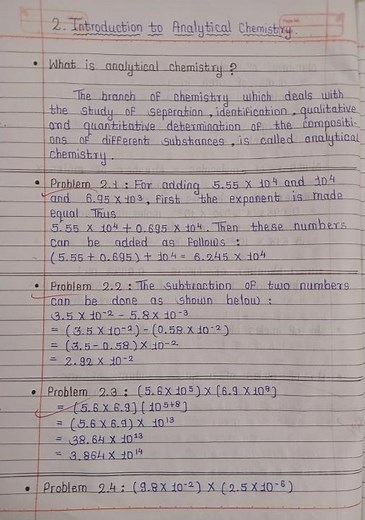 2. Introduction to Analytical Chemistry.
• What is analytical chemistry ?
The branch of chemistry which deals with
the study of seperation, identification, qualitative
and quantitative determination of the compositi-
ons of different substances, is called analytical
chemistry.
• Problem 2.1 : For adding 5.55 × 10⁴ and 10⁴
and 6.95 × 10³, first the exponent is made
equal. Thus
5.55 × 10⁴ + 0.695 × 10⁴. Then these numbers
can be added as follows :
(5.55 + 0.695) + 10⁴ = 6.245 × 10⁴
• Problem 2.2 : The subtraction of two numbers
can be done as shown below :
3.5 × 10⁻² - 5.8 × 10⁻³
= (3.5 × 10⁻²) - (0.58 × 10⁻²)
= (3.5 - 0.58) × 10⁻²
= 2.92 × 10⁻²
• Problem 2.3 : (5.6 × 10⁵) × (6.9 × 10⁸)
= (5.6 × 6.9) (10⁵⁺⁸)
= (5.6 × 6.9) × 10¹³
= 38.64 × 10¹³
= 3.864 × 10¹⁴
• Problem 2.4 : (9.8 × 10⁻²) × (2.5 × 10⁻⁶)